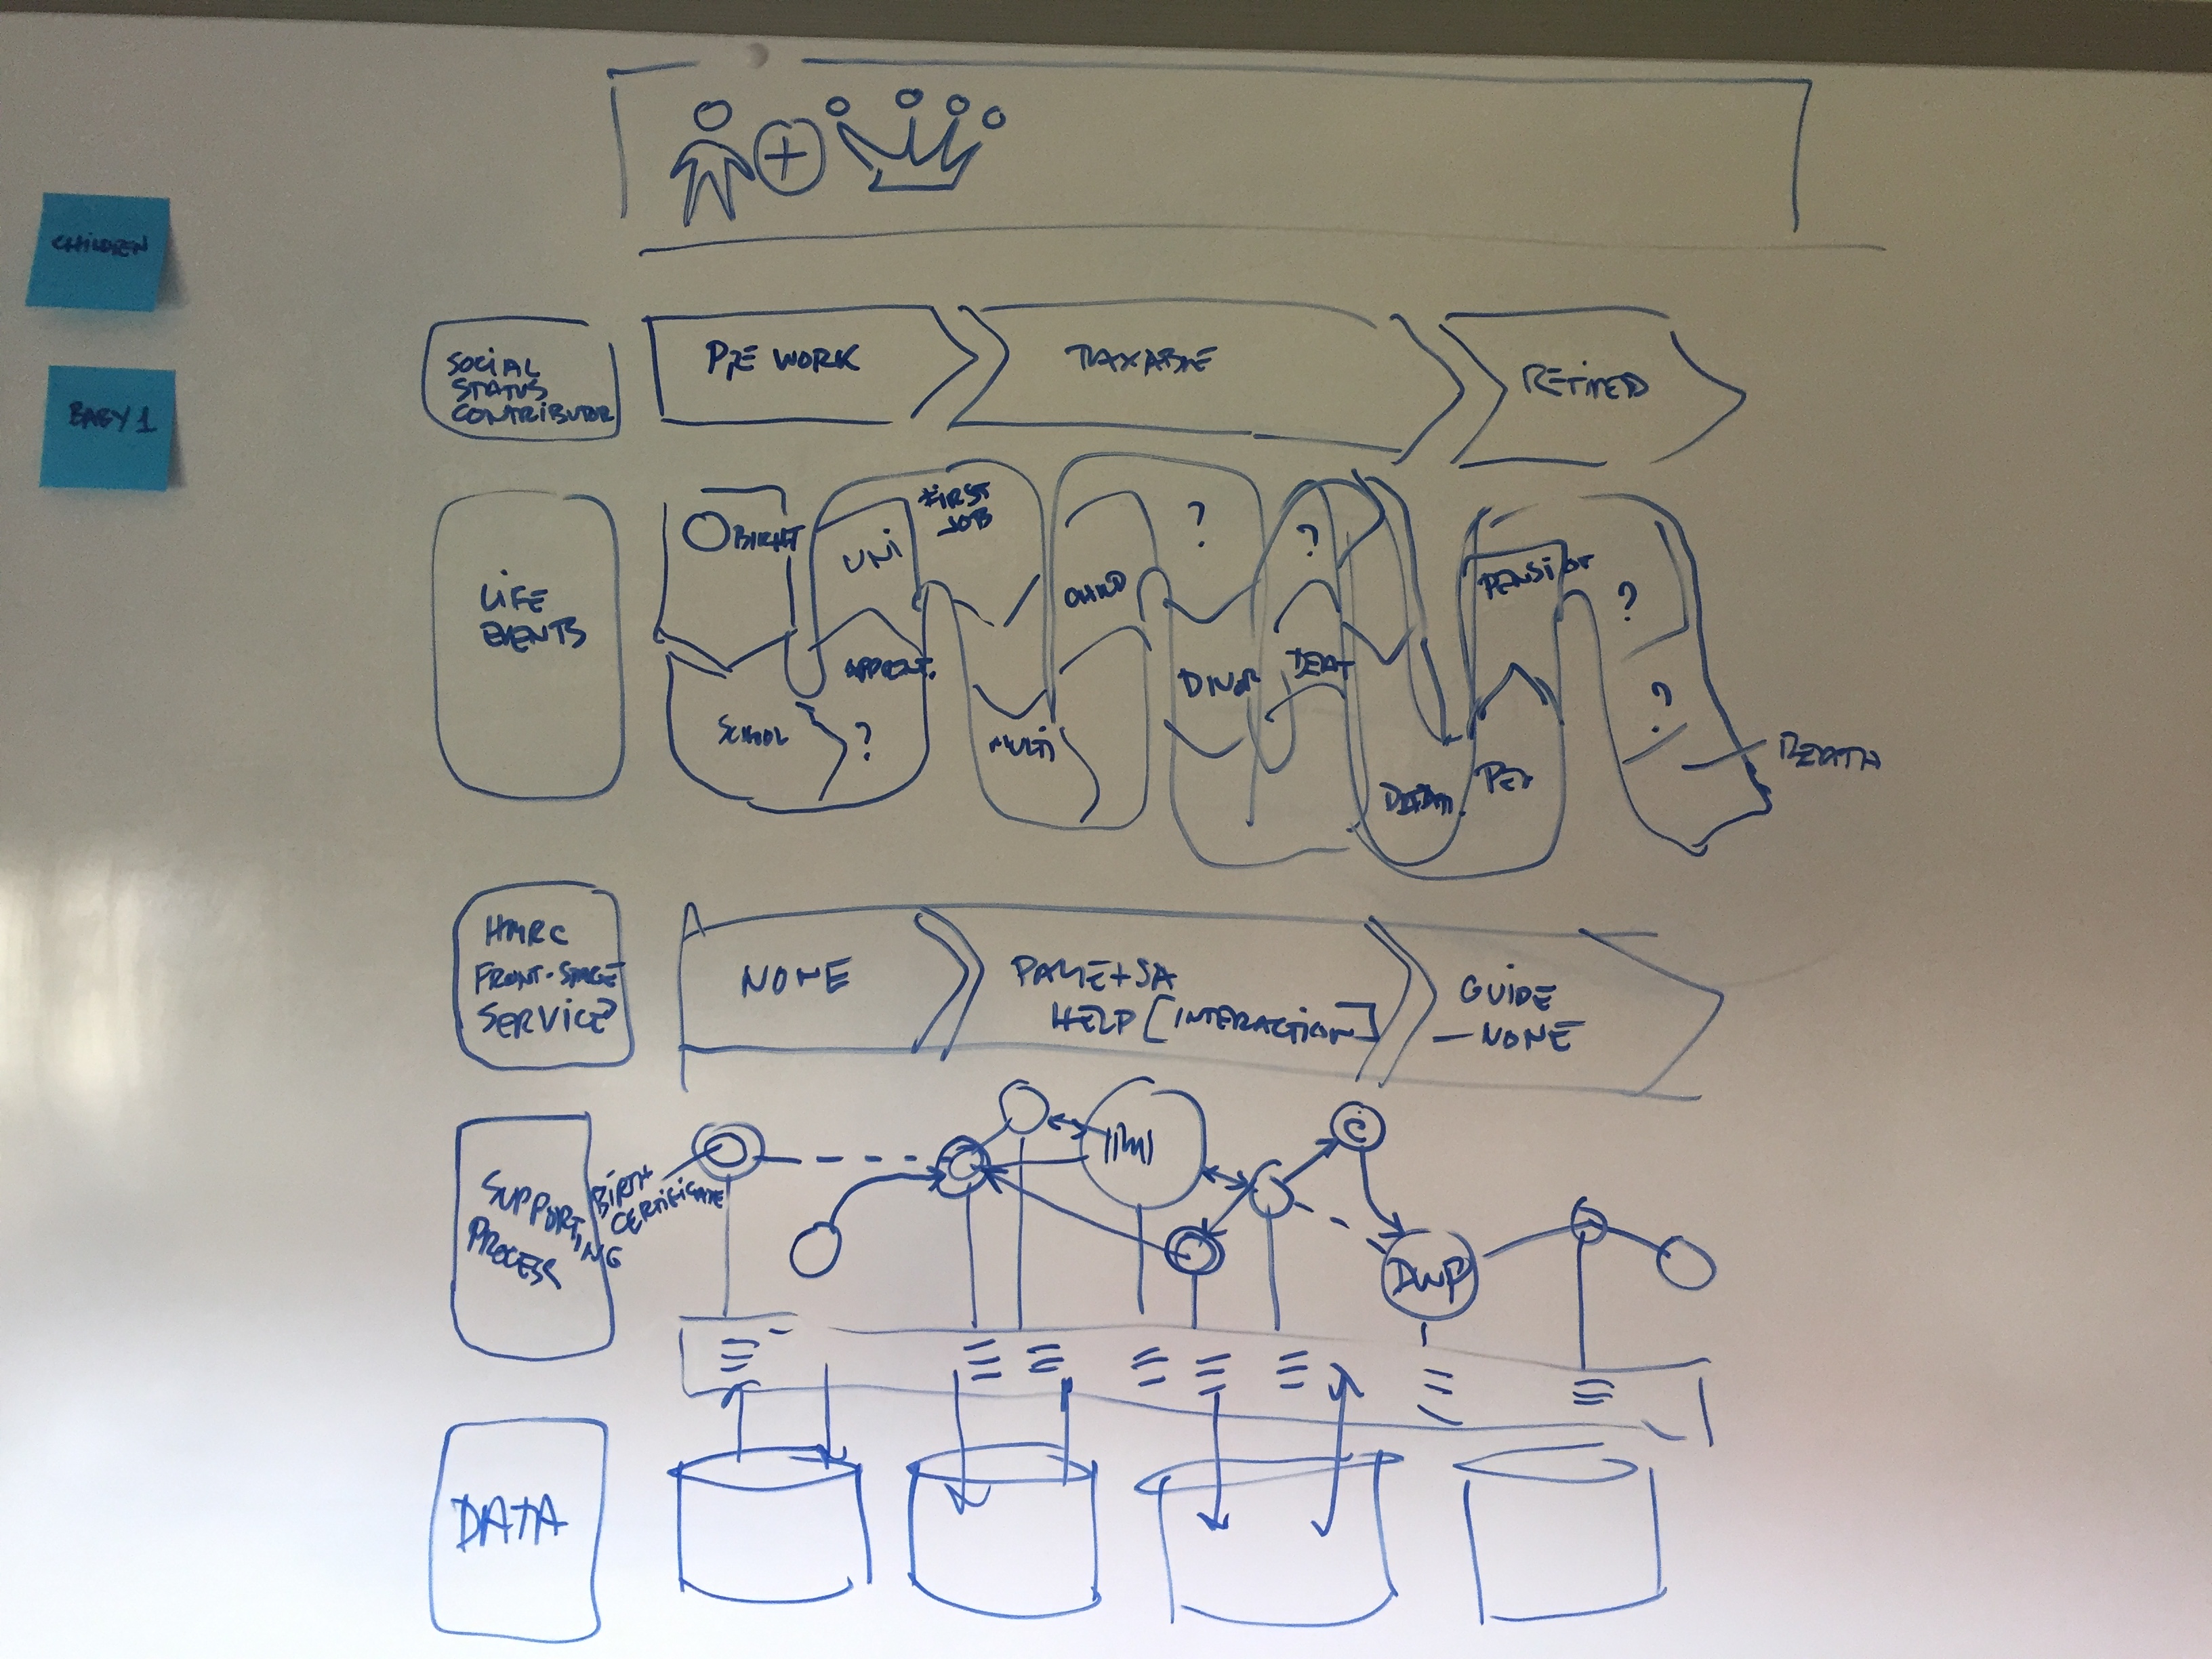 CHILDREN
BABY 1
SOCIAL
STATUS
CONTRIBUTOR
PRE WORK
TAXABLE
RETIRED
LIFE
EVENTS
BIRHT
UNI
FIRST
JOB
APPRENT.
SCHOOL
?
MULTI
CHILD
?
DIVOR
?
DEAT
PENSIOT
?
?
PET
DEATH
HMRC
FRONT-STAGE
SERVICE?
NONE
PAYE+SA
HELP [INTERACTION]
GUIDE
—NONE
SUPPORTING
PROCESS
BIRTH
CERTIFICATE
C
DWP
DATA